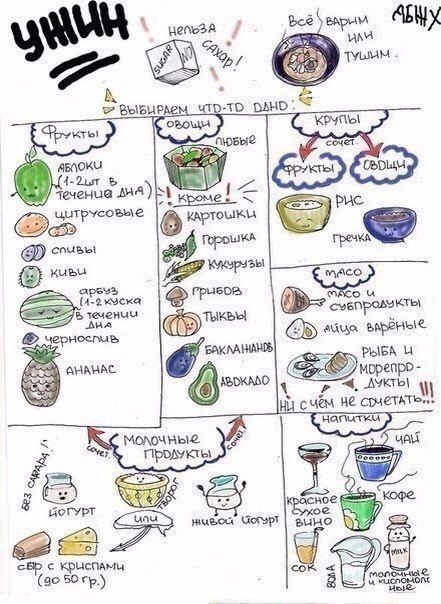 УЖИН
НЕЛЬЗЯ
САХАР!
SUGAR
NO
ВСЁ ВАРИМ
ИЛИ
ТУШИМ.
ВЫБИРАЕМ ЧТО-ТО ОДНО:
ФРУКТЫ
ЯБЛОКИ
(1-2ШТ В
ТЕЧЕНИИ ДНЯ)
ЦИТРУСОВЫЕ
СЛИВЫ
КИВИ
АРБУЗ
(1-2 КУСКА
В ТЕЧЕНИИ
ДНЯ
ЧЕРНОСЛИВ
АНАНАС
ОВОЩИ
ЛЮБЫЕ
! КРОМЕ !
КАРТОШКИ
ГОРОШКА
КУКУРУЗЫ
ГРИБОВ
ТЫКВЫ
БАКЛАЖАНОВ
АВОКАДО
КРУПЫ
СОЧЕТ.
ФРУКТЫ
ОВОЩИ
РИС
ГРЕЧКА
МЯСО
МЯСО И
СУБПРОДУКТЫ
ЯЙЦА ВАРЁНЫЕ
РЫБА И
МОРЕПРО-
ДУКТЫ
НИ С ЧЕМ НЕ СОЧЕТАТЬ!!!
МОЛОЧНЫЕ
ПРОДУКТЫ
СОЧЕТ.
СОЧЕТ.
БЕЗ САХАРА!
ЙОГУРТ
ТВОРОГ
ИЛИ
ЖИВОЙ ЙОГУРТ
СЫР С КРИСПАМИ
(ДО 50 ГР.)
НАПИТКИ
ЧАЙ
КРАСНОЕ
СУХОЕ
ВИНО
КОФЕ
СОК
ВОДА
MILK
МОЛОЧНЫЕ
И КИСЛОМОЛОЧ
НЫЕ